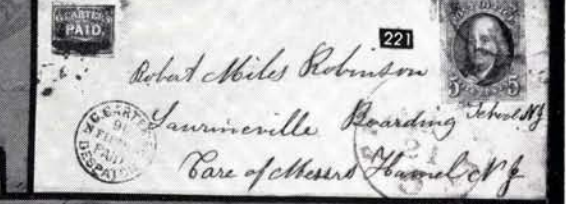 CARTER'S
PAID
221
POST OFFICE
5 5
Robert Miles Robinson
Laurineville Boarding School NJ
Care of Messrs Hamel NJ
W. CARTER'S
PAID
DESPATCH
21